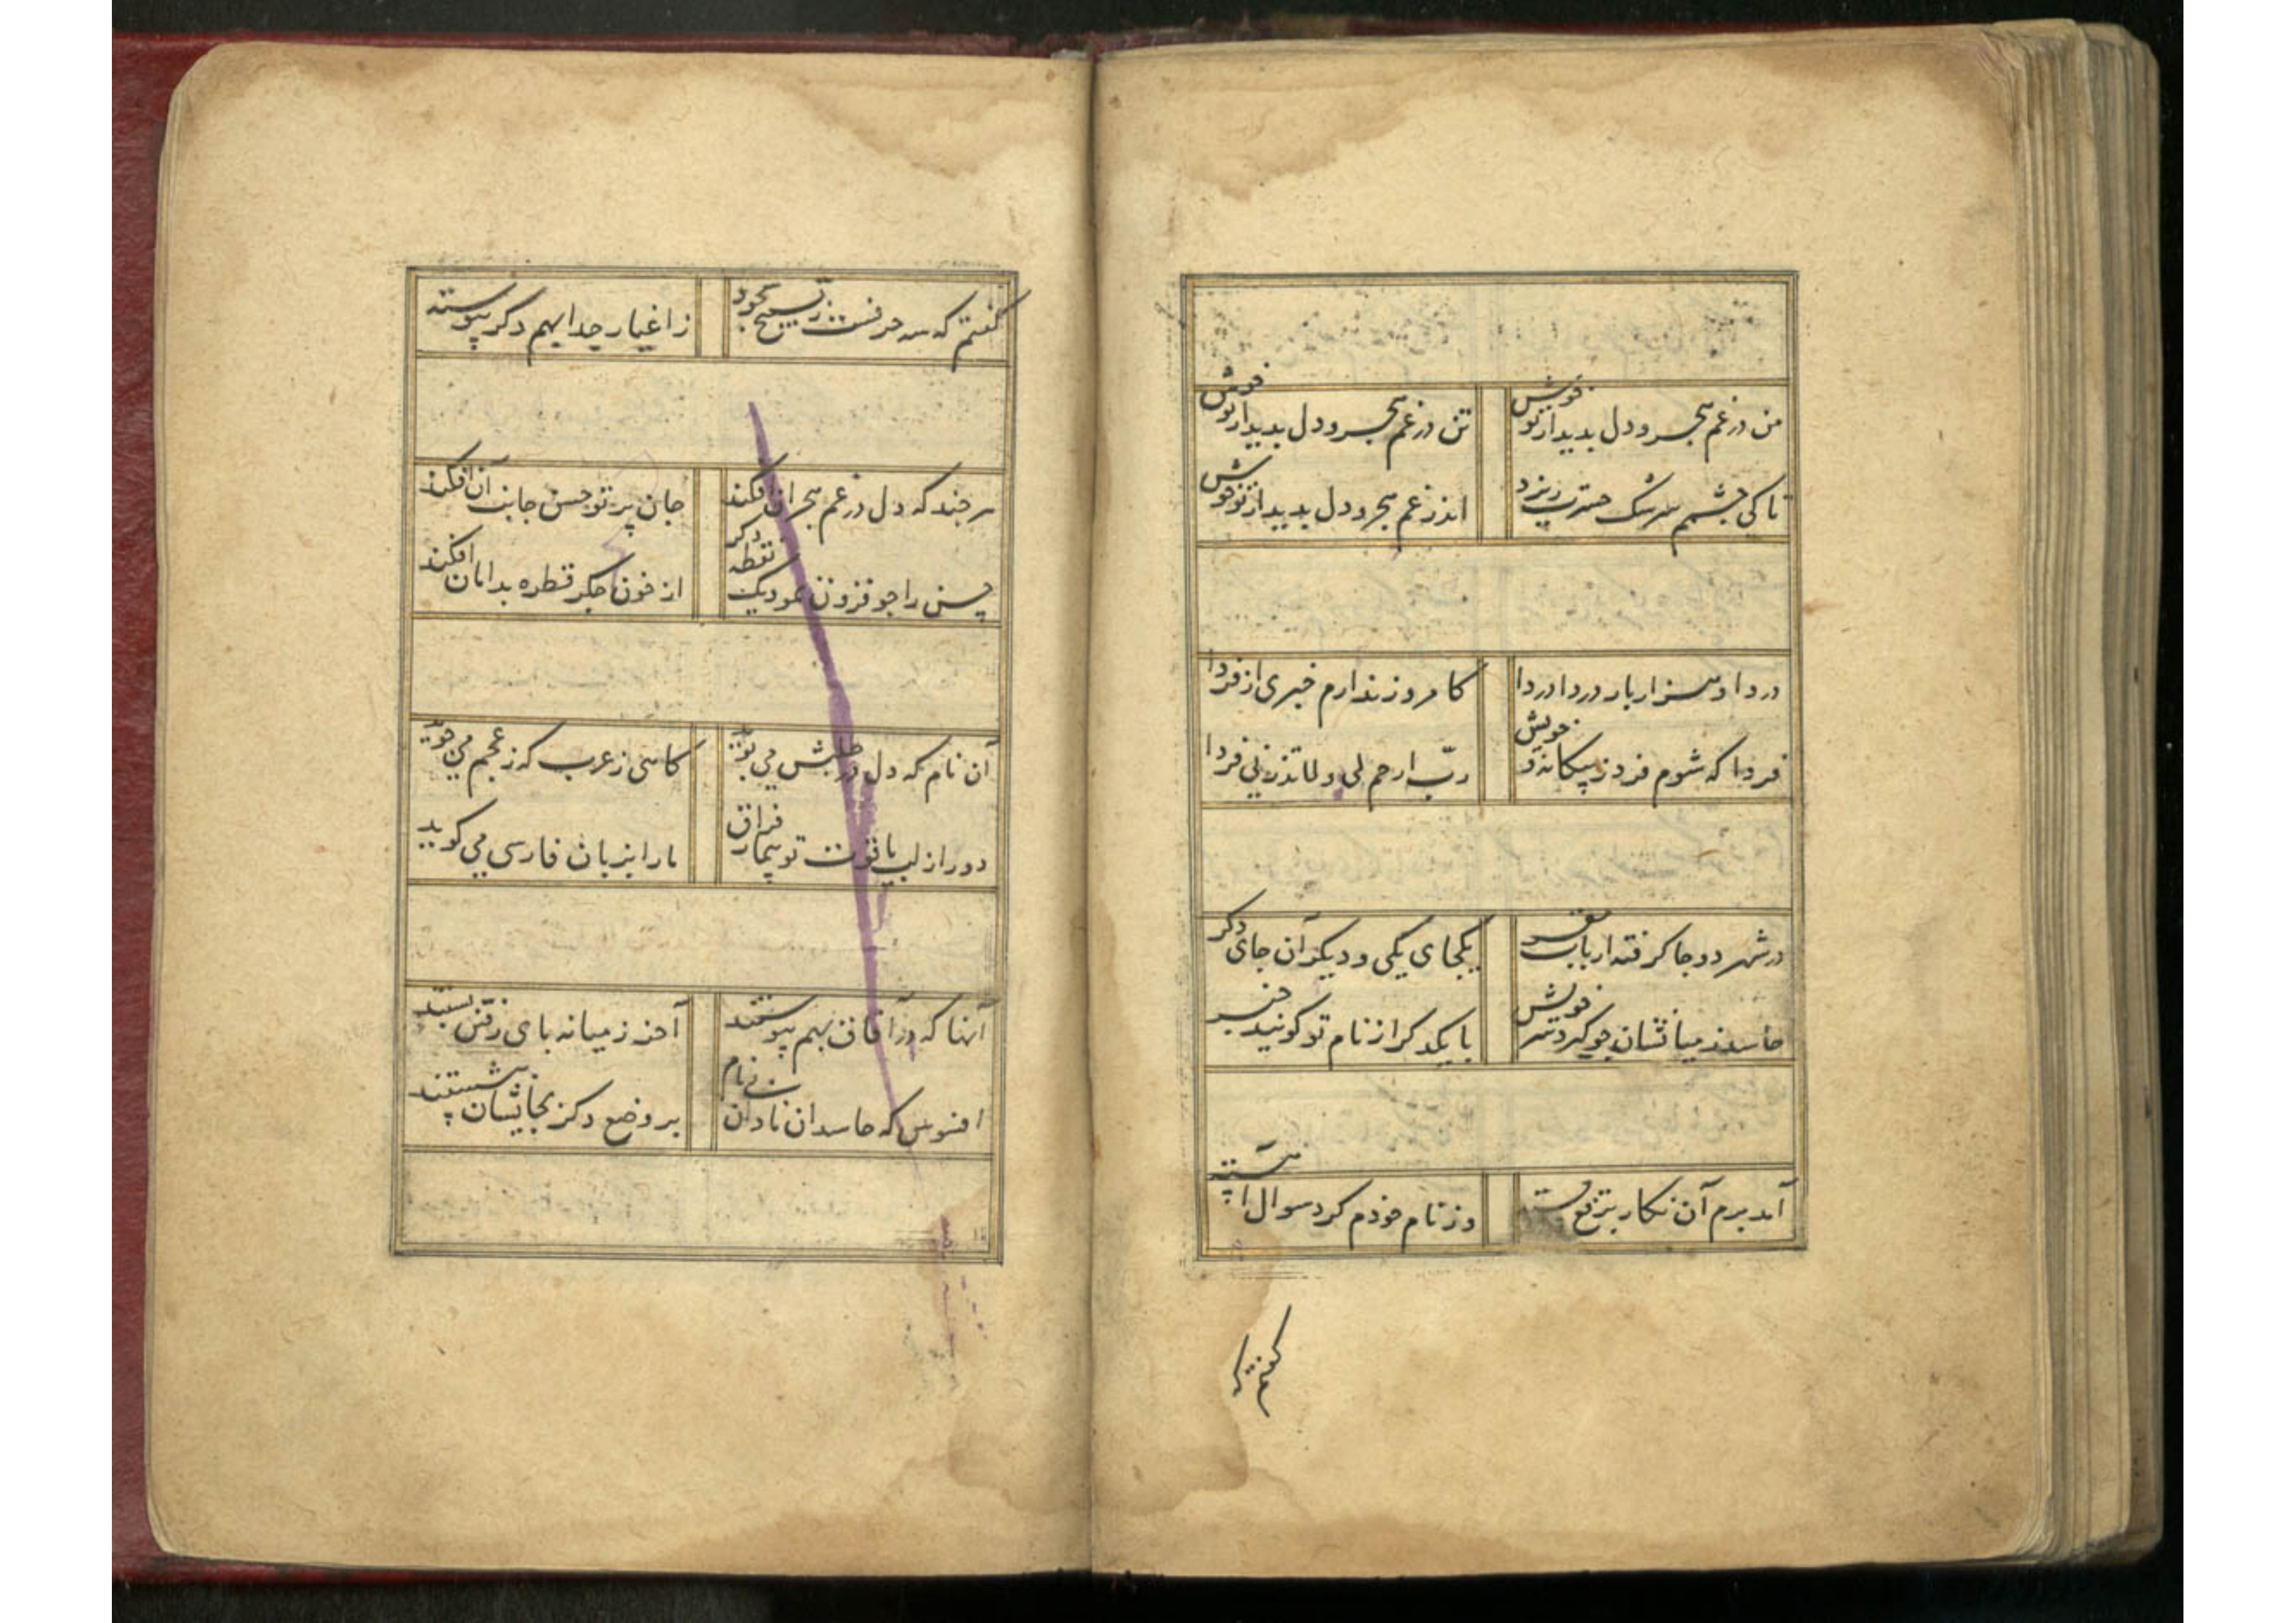 من در غم هجر و دل بدیدار تو خوش
تن در غم هجر و دل بدیدار تو خوش
تا کی چشمم سرشک حسرت ریزد
اندر غم هجر و دل بدیدار تو خوش
دردا و هزار بار دردا دردا
کامروز ندارم خبری از فردا
فردا که شوم فرد ز بیکانه و خویش
ربّ ارحم لی و لا تذرنی فردا
در شهر دو جا کرفته ارباب
یکجای یکی و دیکر آن جای دکر
حاسد ز میانشان چو کردسر خویش
با یکدکر از نام تو کویند خبر
آمد برم آن نکار برقع بسته
وز نام خودم کرد سوال آهسته
کفتم که
کفتم که سه حرفست ز تسبیح بجود
ز اغیار جدا بهم دکر پیوسته
هر چند که دل در غم هجران افکند
جان پرتو حسن جانب آن افکند
حسن را چو فزون نمود یک نقطه دکر
از خون جکر قطره بدامان افکند
آن نام که دل در طلبش می پوید
کاهی ز عرب که ز عجم می جوید
دور از لب یاقوت تو بیمار فراق
ما را بزبان فارسی می کوید
آنها که در آفاق بهم پیوستند
آخر ز میانه پای رفتن بستند
افسوس که حاسدان نادان
بر وضع دکر بجایشان بنشستند